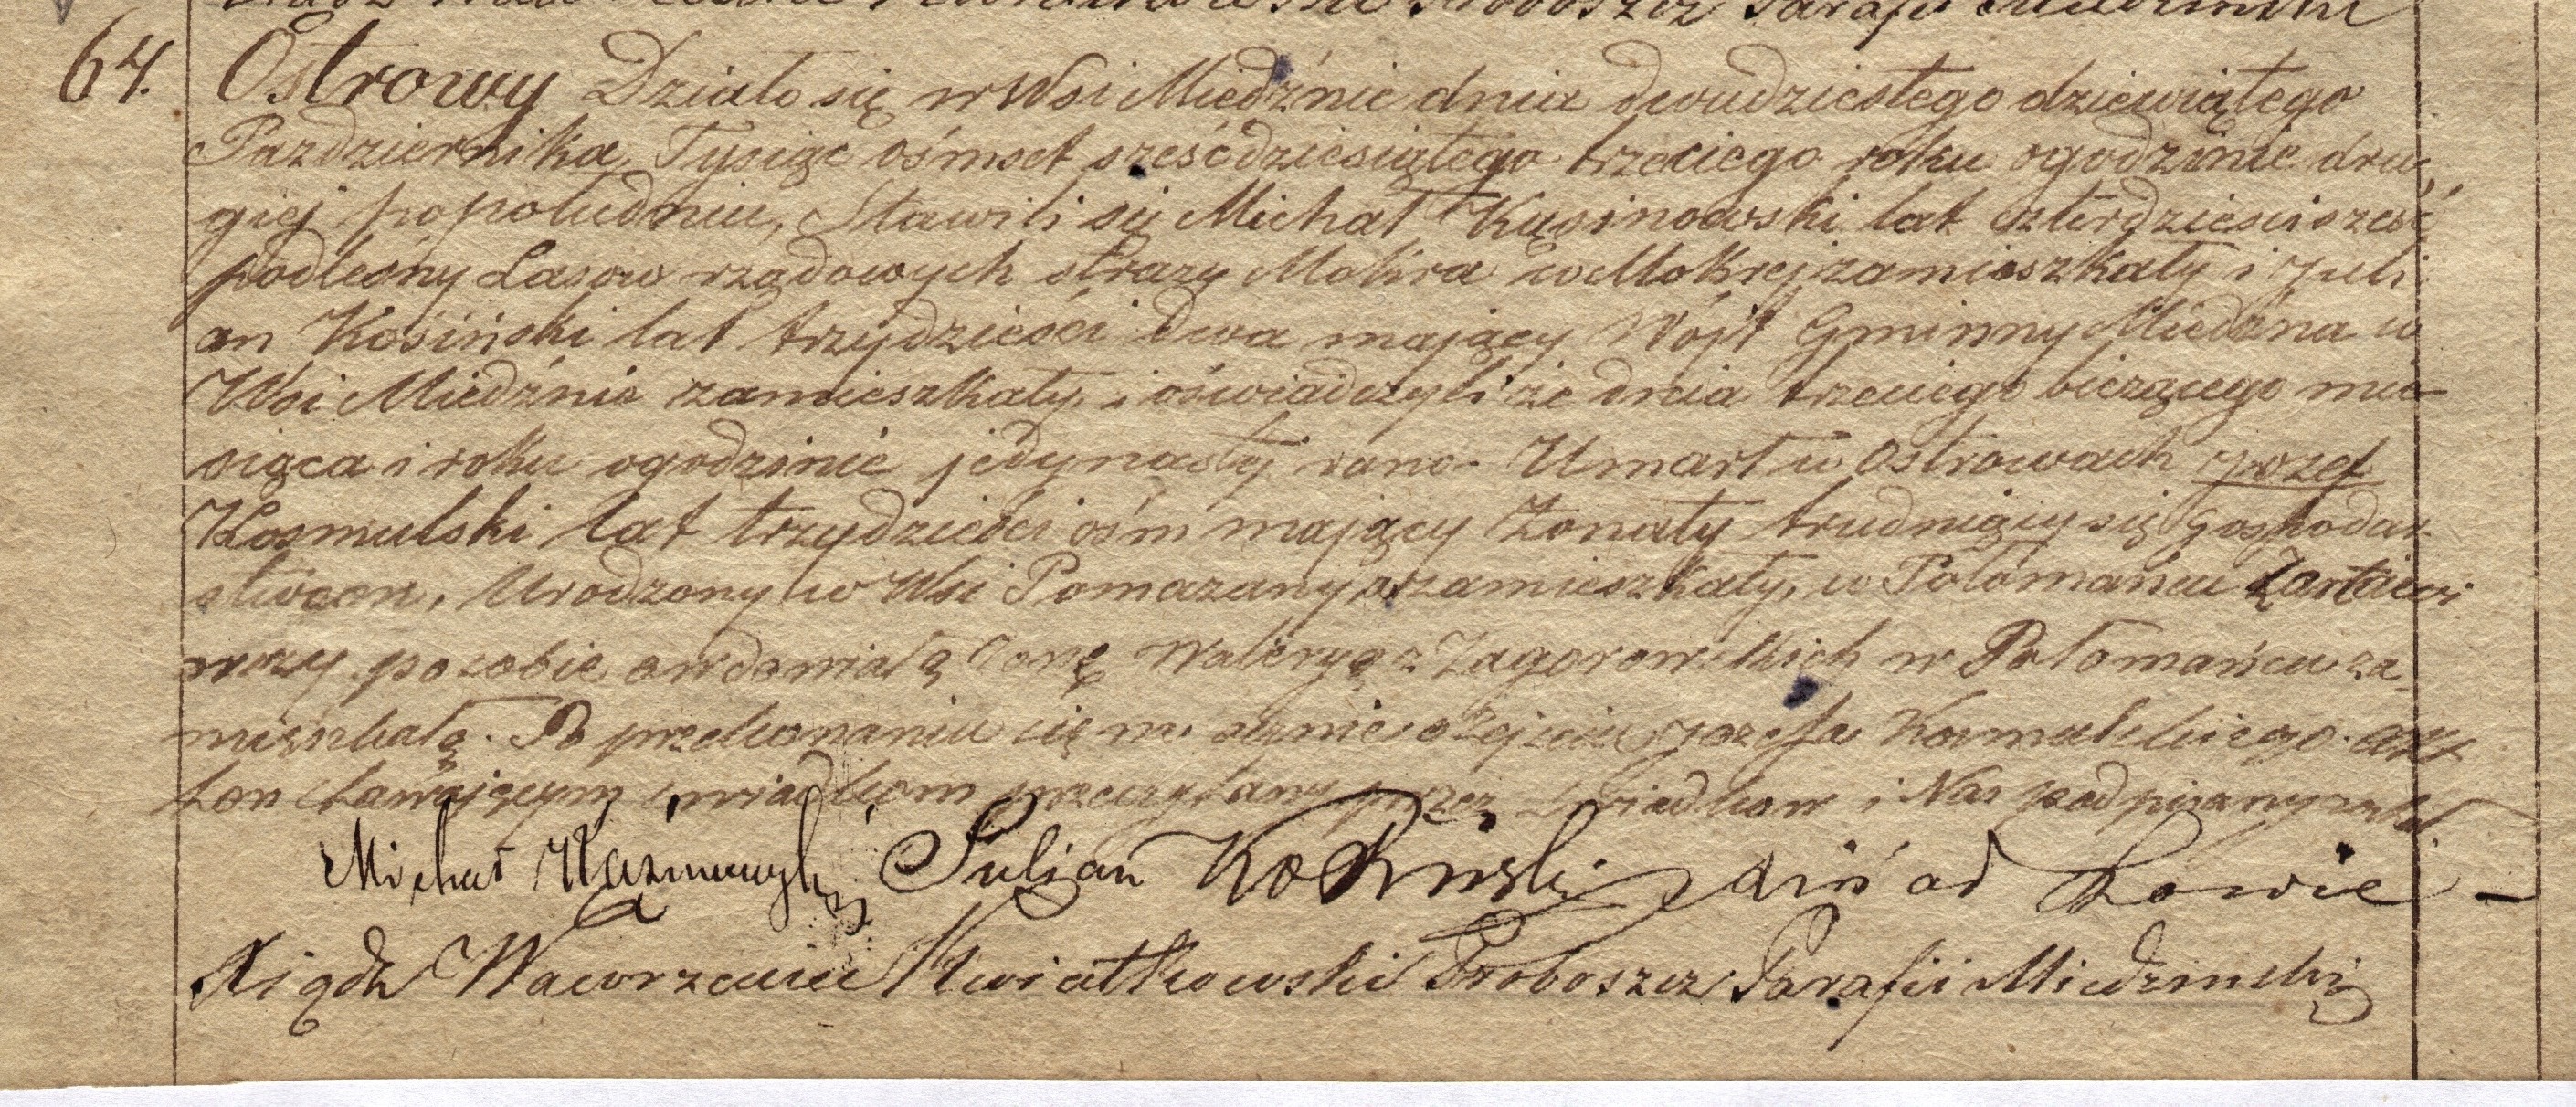 Proboszcz Parafii
64. Ostrowy Działo się w Wsi Miedźnie dnia dwudziestego dziewiątego
Pazdziernika, Tysiąc ośmset sześćdziesiątego trzeciego roku ogodzinie dru,
giej popołudniu, Stawili się Michał lat czterdzieści sześć
podleśny Lasow rządowych straży Mokra w Mokrej zamieszkały i Juli
an Kosiński lat trzydzieści dwa mający Wójt Gminny Miedźna w
Wsi Miedźnie zamieszkały, i oświadczyli że dnia trzeciego bieżącego mie
siąca i roku ogodzinie jedynasty rano. Umarł w Ostrowach Jozef
Kosmulski lat trzydzieści ośm mający Żonaty trudniący się Gospodar
stwem, Urodzony w Wsi Pomazany zamieszkały, w Połomańcu Zostawi
wszy po sobie owdowiałą żonę Waleryą z Zagorowskich w Połomańcu za,
mięszkałą. Po przekonaniu się o Zejściu Jozefa Kosmulskiego. akt
ten stawającym świadkom przeczytany przez Świadkow i Nas podpisany został
Michał Julian Kosiński
Xiądz Wawrzeniec Kwiatkowski Proboszcz Parafii Miedzinski